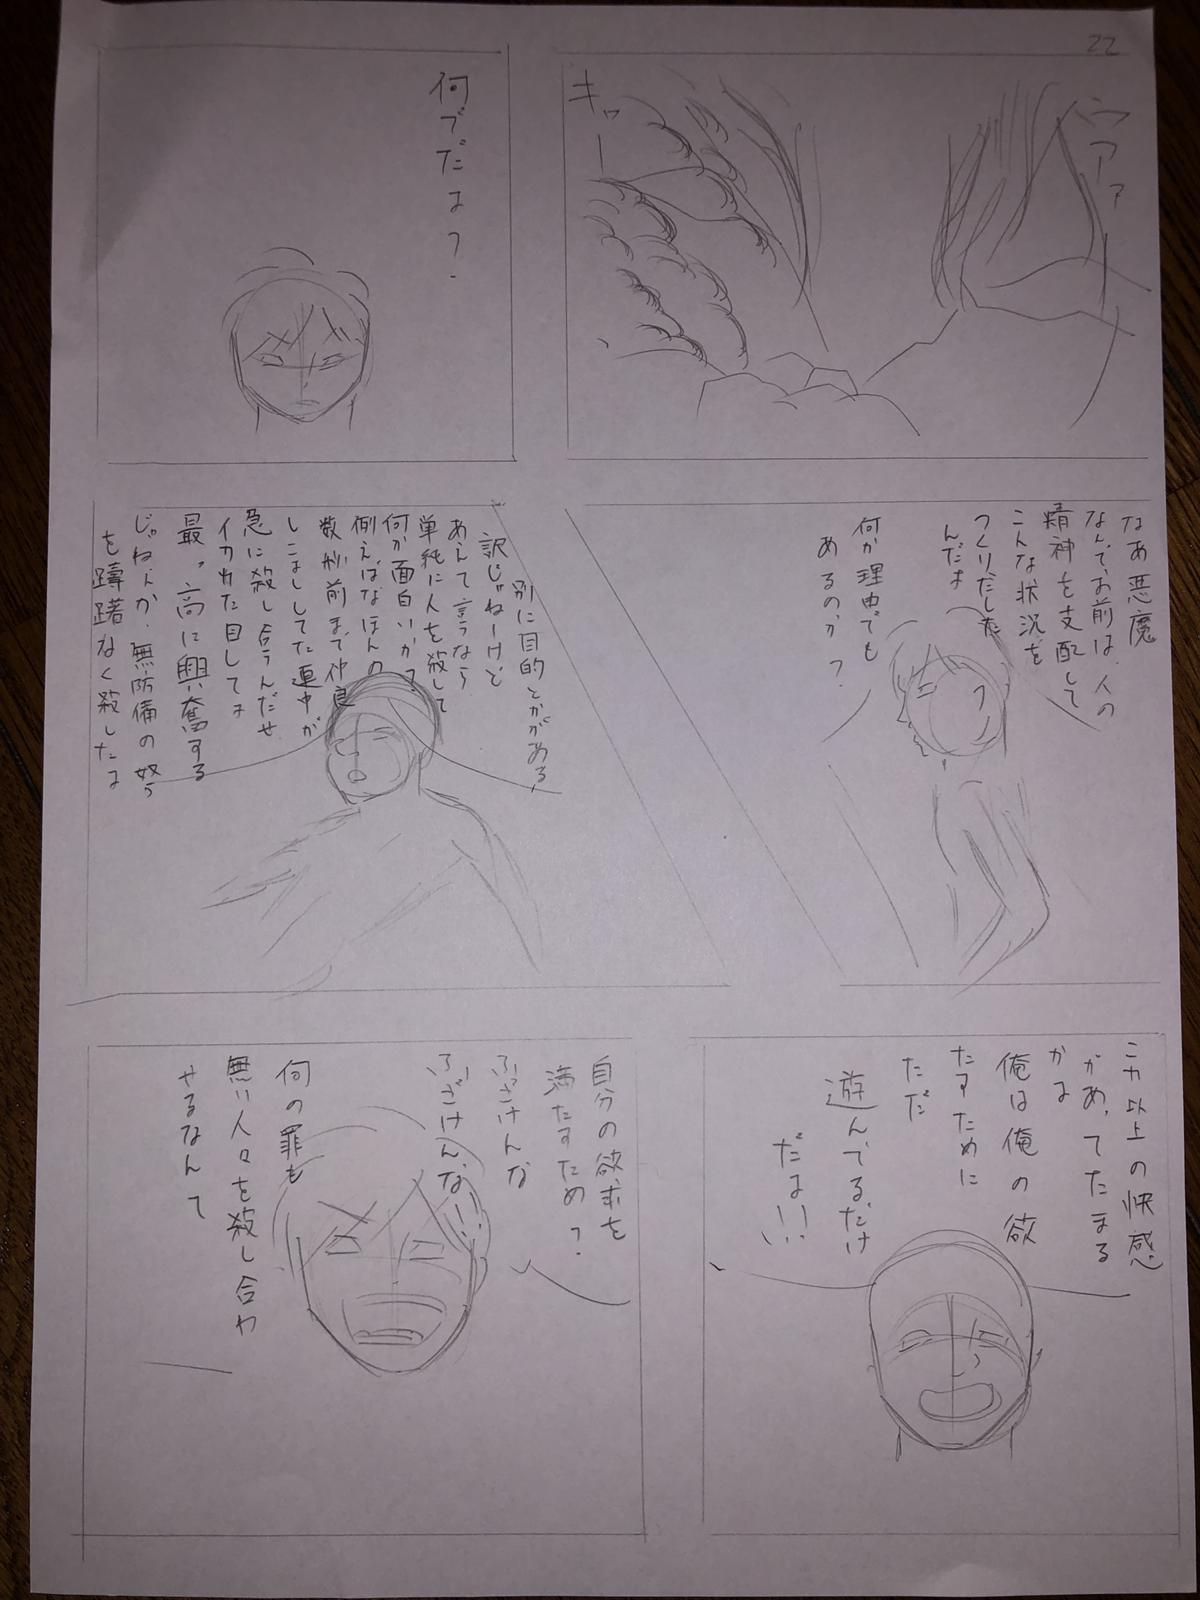 22
ウアァ
キャー
何でだよ?
なあ悪魔
なんでお前は、人の
精神を支配して
こんな状況を
つくりだした
んだよ
何か理由でも
あるのか?
別に目的とかがある
訳じゃねーけど
あえて言うなら
単純に人を殺して
何が面白いかって
例えばなほんの
数秒前まで仲良
しこよししてた連中が
急に殺し合うんだぜ
イカれた目してよ
最っ高に興奮する
じゃねぇか、無防備の奴ら
を躊躇なく殺したよ
これ以上の快感
があってたまる
かよ
俺は俺の欲
たすために
ただ
遊んでるだけ
だよ!!
自分の欲求を
満たすため?
ふざけんな
ふざけんな!!
何の罪も
無い人々を殺し合わ
せるなんて